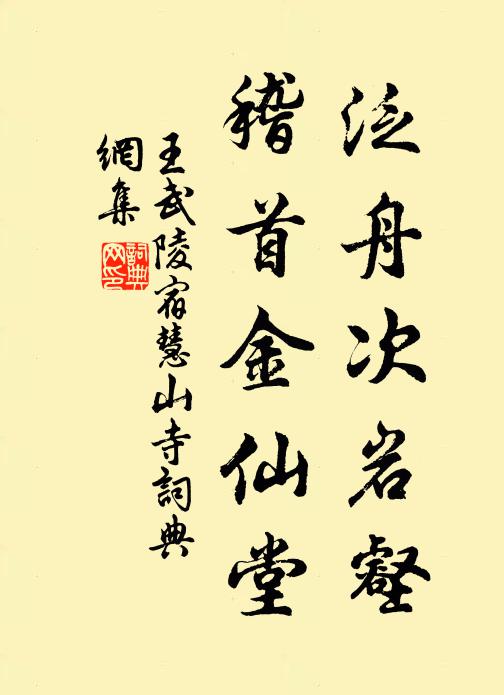 泛舟次岩壑
稽首金仙堂
王武陵宿慧山寺詞典
網集
詞典
网印